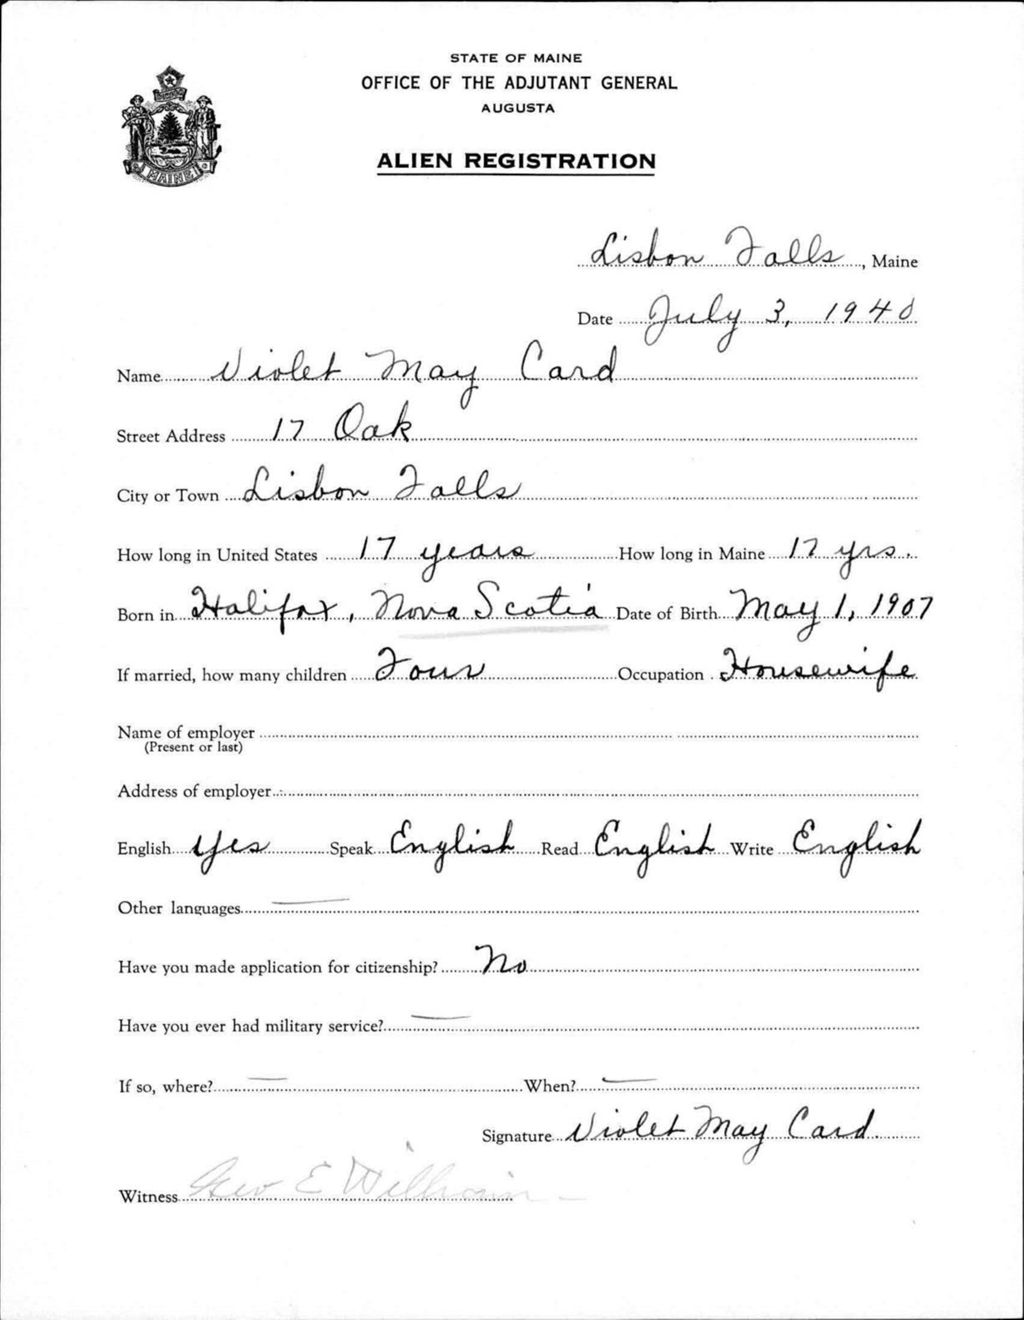 STATE OF MAINE
OFFICE OF THE ADJUTANT GENERAL
AUGUSTA
ALIEN REGISTRATION
MAINE
Lisbon Falls, Maine
Date July 3, 1940
Name Violet May Card
Street Address 17 Oak
City or Town Lisbon Falls
How long in United States 17 years How long in Maine 17 yrs.
Born in Halifax, Nova Scotia Date of Birth May 1, 1907
If married, how many children Four Occupation Housewife
Name of employer
(Present or last)
Address of employer
English Yes Speak English Read English Write English
Other languages —
Have you made application for citizenship? No
Have you ever had military service? —
If so, where? — When? —
Signature Violet May Card
Witness Geo E